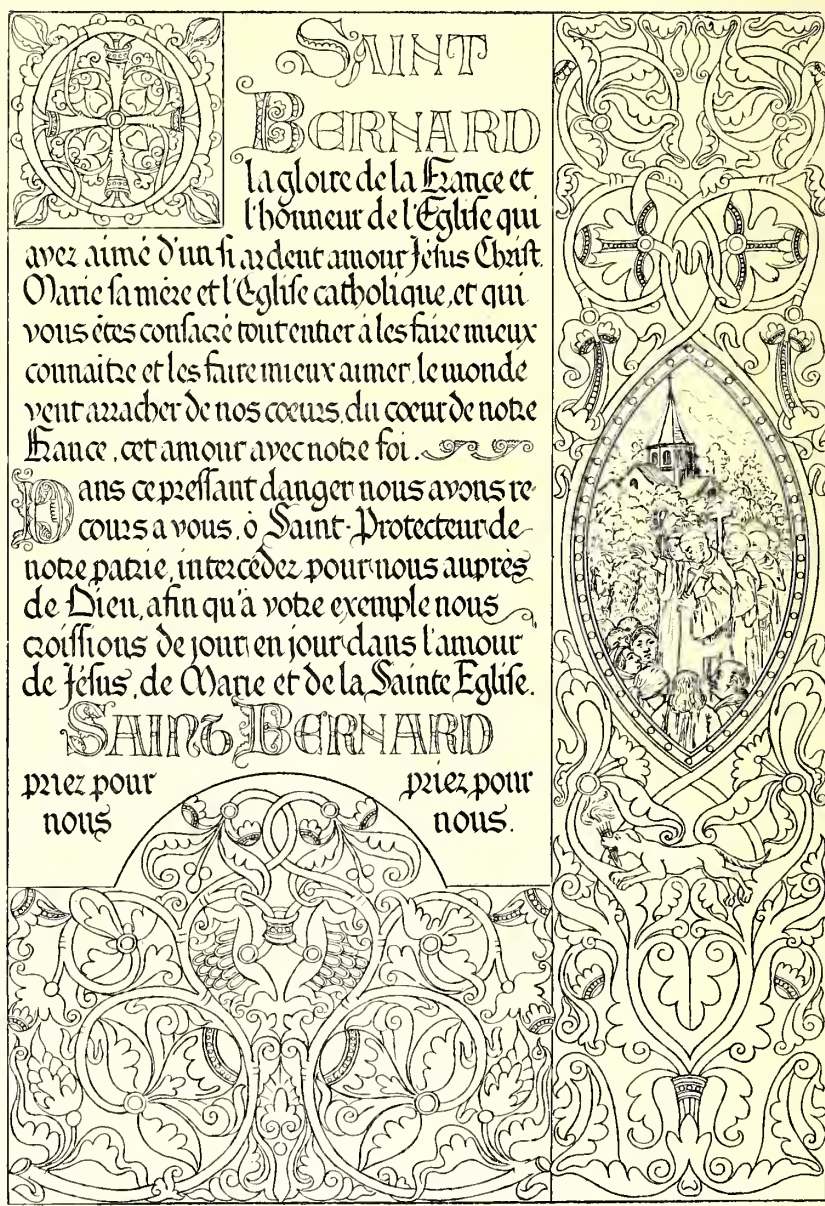 O SAINT
BERNARD
la gloire de la France et
l'honneur de l'Eglise qui
avez aimé d'un si ardent amour Jésus Christ.
Marie sa mère et l'Eglise catholique, et qui
vous êtes consacré tout entier à les faire mieux
connaitre et les faire mieux aimer, le monde
veut arracher de nos coeurs, du coeur de notre
France, cet amour avec notre foi.
Dans ce pressant danger nous avons re-
cours a vous, ô Saint-Protecteur de
notre patrie, intercédez pour nous auprès
de Dieu, afin qu'à votre exemple nous
croissions de jour en jour dans l'amour
de Jésus, de Marie et de la Sainte Eglise.
SAINT BERNARD
priez pour priez pour
nous nous.